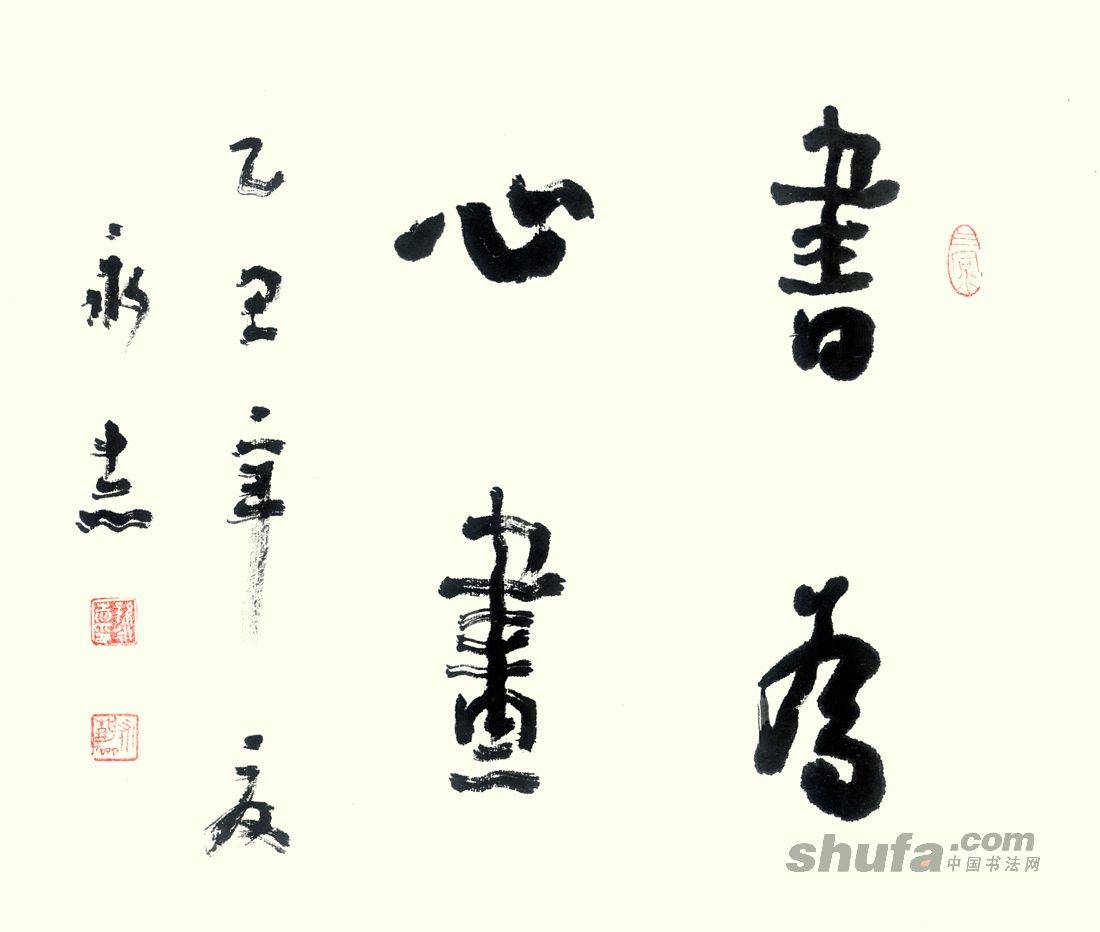 書為
心畫
己丑年夏
永
shufa.com
中国书法网